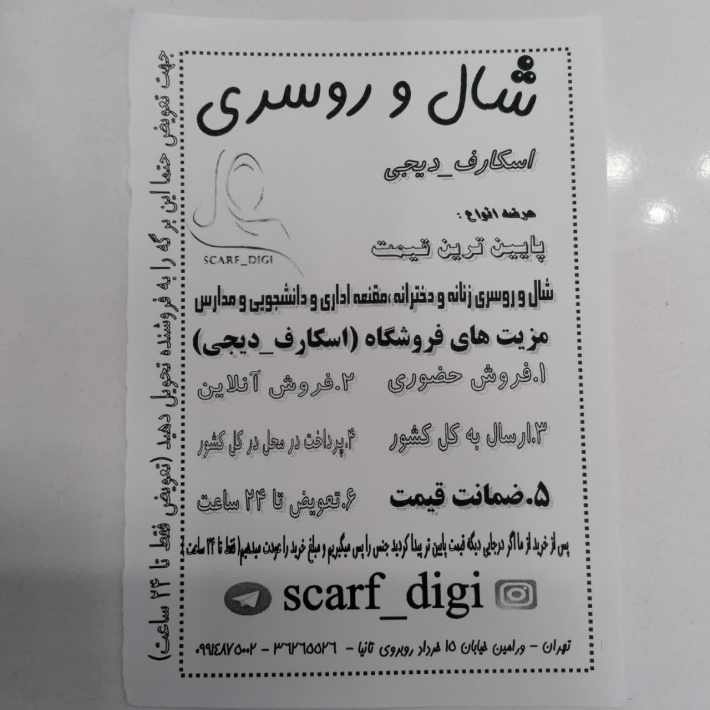 شال و روسری
اسکارف_دیجی
SCARF_DIGI
عرضه انواع :
پایین ترین قیمت
شال و روسری زنانه و دخترانه ،مقنعه اداری و دانشجویی و مدارس
مزیت های فروشگاه (اسکارف_دیجی)
۱.فروش حضوری ۲.فروش آنلاین
۳.ارسال به کل کشور ۴.پرداخت در محل در کل کشور
۵.ضمانت قیمت ۶.تعویض تا ۲۴ ساعت
پس از خرید از ما اگر درجایی دیگه قیمت پایین تر پیدا کردید جنس را پس میگیریم و مبلغ خرید را عودت میدهیم( فقط تا ۲۴ ساعت )
scarf_digi
تهران - ورامین خیابان ۱۵ خرداد روبروی تانیا - ۳۶۲۶۵۵۲۶ - ۰۹۹۱۴۸۷۵۰۰۲
جهت تعویض حتما این برگه را به فروشنده تحویل دهید (تعویض فقط تا ۲۴ ساعت)